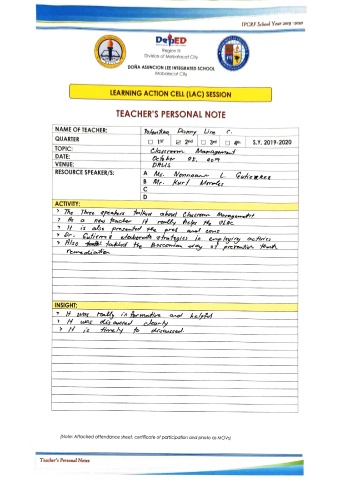 IPCRF School Year 2019-2020
DepED
Region III
Division of Mabalacat City
DOÑA ASUNCION LEE INTEGRATED SCHOOL
Mabalacat City
LEARNING ACTION CELL (LAC) SESSION
TEACHER'S PERSONAL NOTE
NAME OF TEACHER: Danny Lira C.
QUARTER □ 1st ☑ 2nd □ 3rd □ 4th S.Y. 2019-2020
TOPIC: Classroom Management
DATE: October 2019
RESOURCE SPEAKER/S: A Ms. L. Gutierrez
B Mr. Kurt
C
D
ACTIVITY:
> The Three speakers talked about Classroom Management
> As a new teacher it really helps the
> It is also presented the pros and cons
> Dr. Gutierrez elaborate strategies in employing activities
> Also tackled the day of prevention
INSIGHT:
> It was really informative and helpful
> It was discussed clearly
> It is timely to discussed.
(Note: Attached attendance sheet, certificate of participation and photo as MOVs)
Teacher's Personal Notes